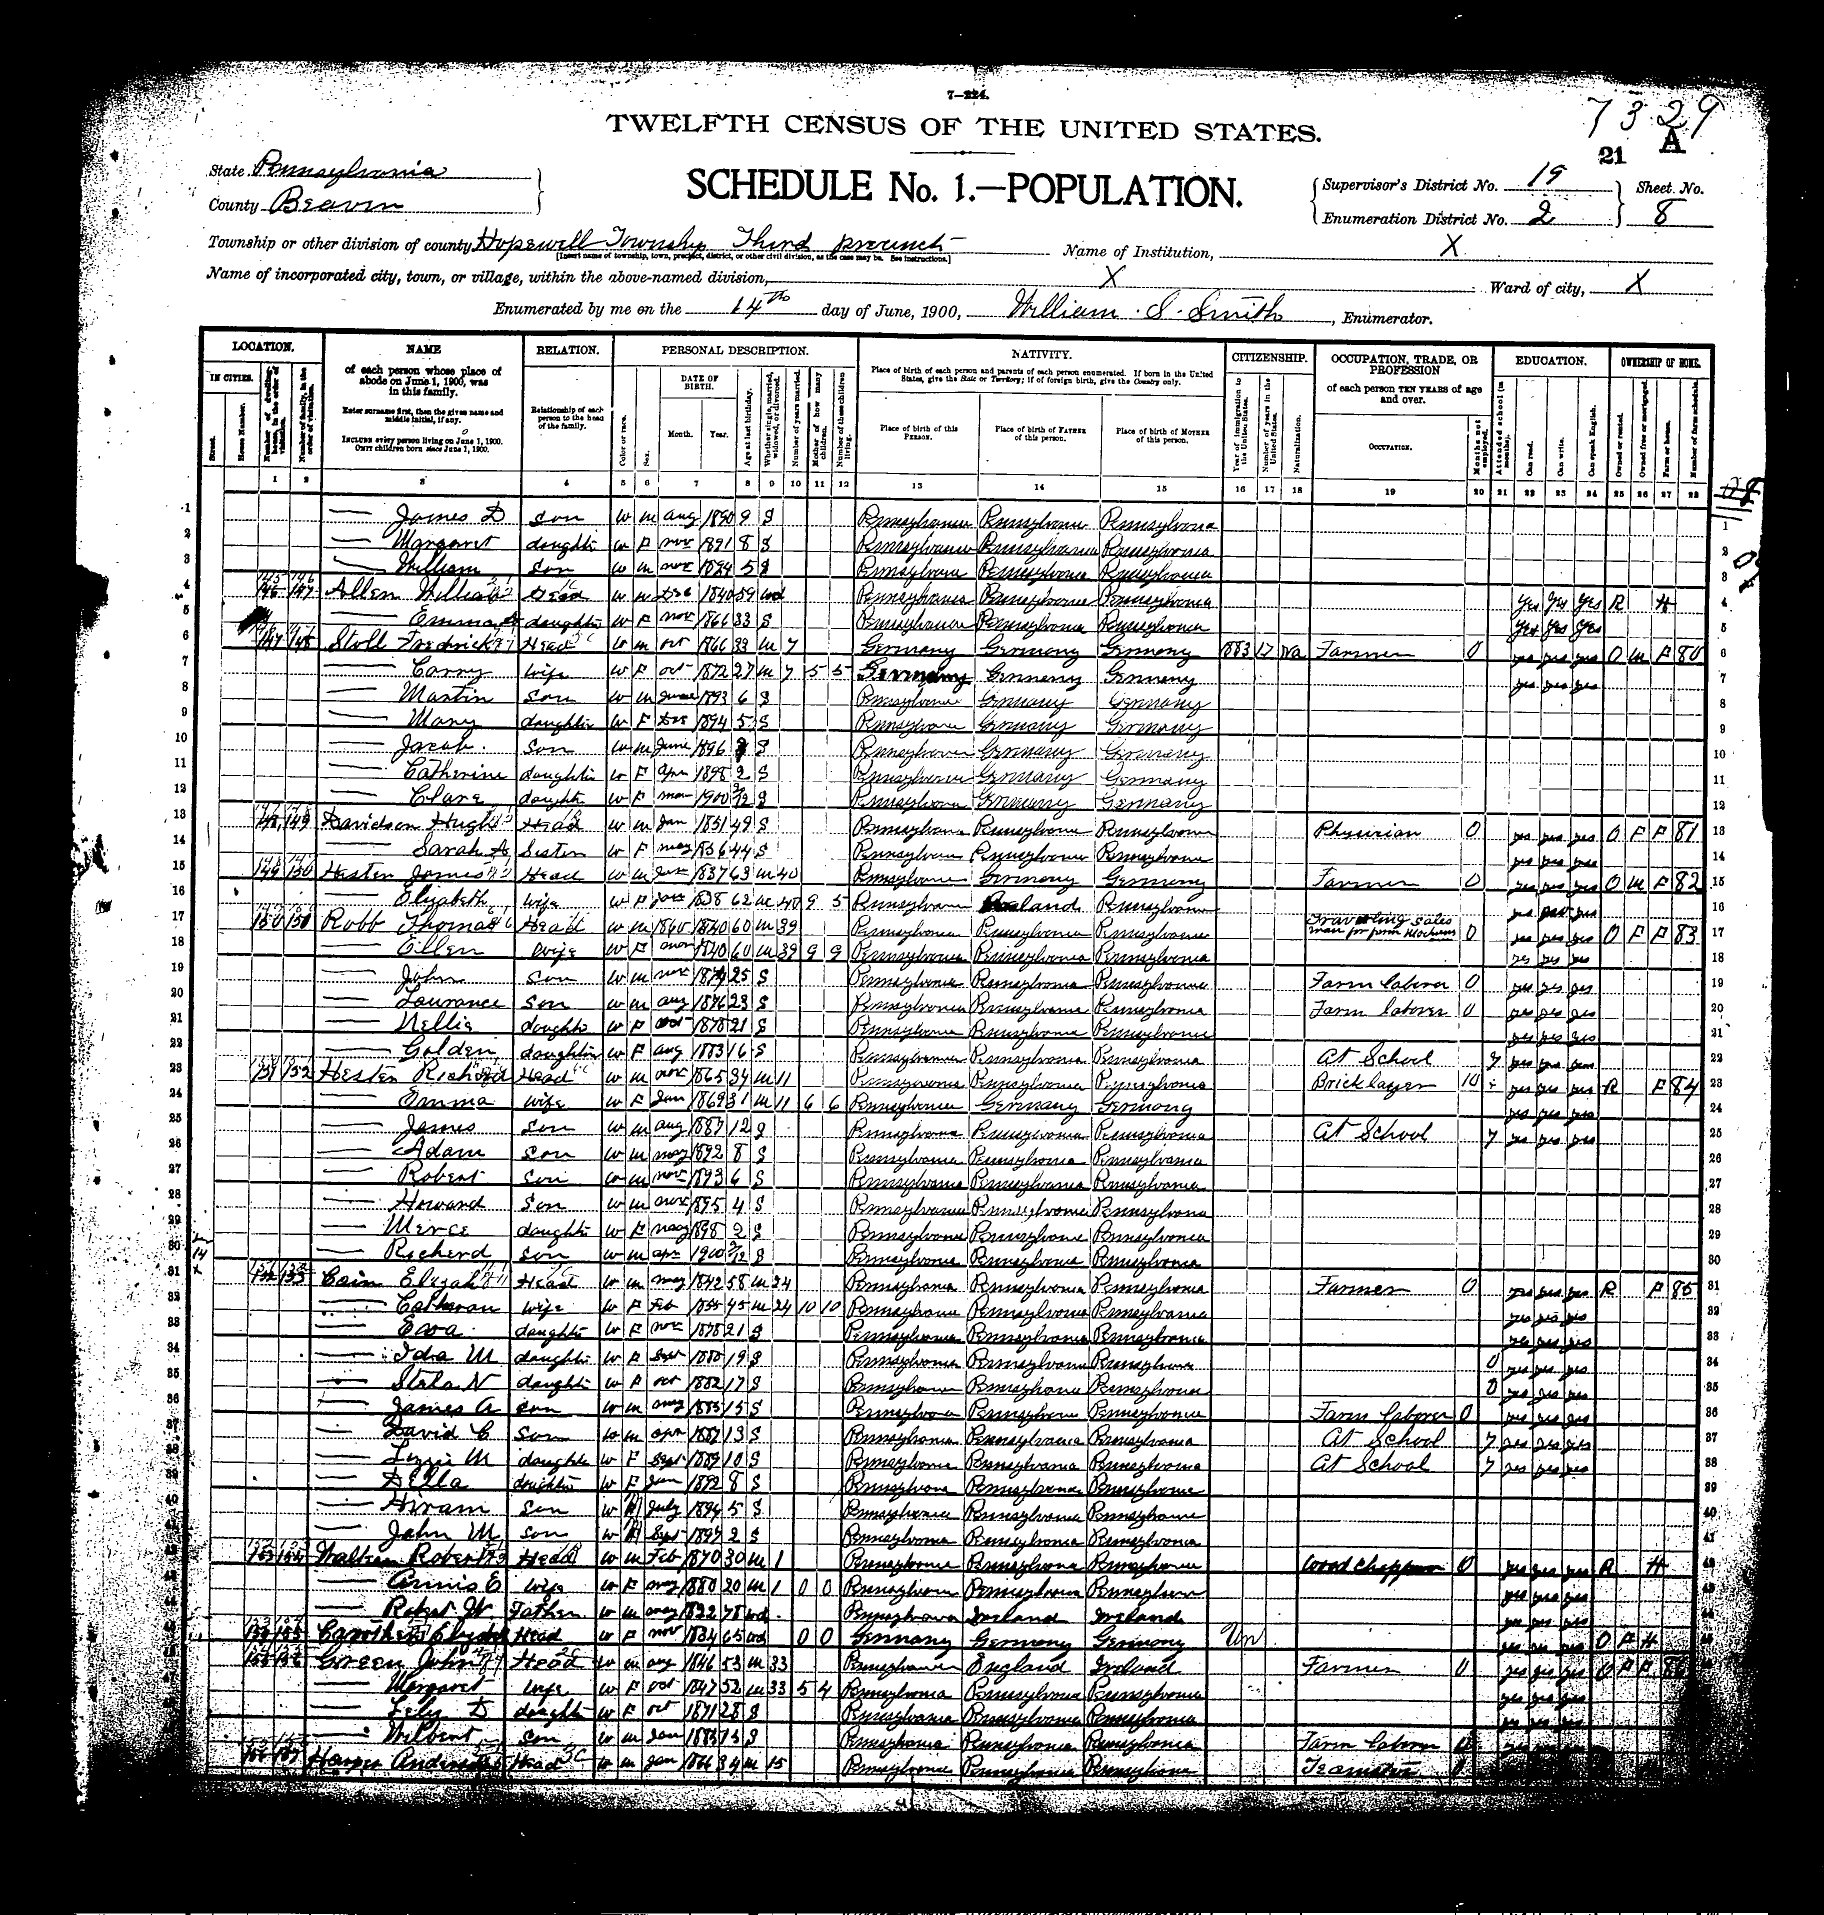 7—224.
7 3 29
TWELFTH CENSUS OF THE UNITED STATES.
21 A
State Pennsylvania
SCHEDULE No. 1.—POPULATION.
Supervisor's District No. 19 Sheet No.
County Beaver
Enumeration District No. 2 8
Township or other division of county Hopewell Township Third precinct Name of Institution, X
[Insert name of township, town, precinct, district, or other civil division, as the case may be. See instructions.]
Name of incorporated city, town, or village, within the above-named division, X Ward of city, X
Enumerated by me on the 14th day of June, 1900, William S. Smith, Enumerator.
LOCATION. NAME RELATION. PERSONAL DESCRIPTION. NATIVITY. CITIZENSHIP. OCCUPATION, TRADE, OR PROFESSION EDUCATION. OWNERSHIP OF HOME.
IN CITIES. of each person whose place of abode on June 1, 1900, was in this family.
Enter surname first, then the given name and middle initial, if any.
INCLUDE every person living on June 1, 1900. OMIT children born since June 1, 1900.
Relationship of each person to the head of the family.
DATE OF BIRTH. Month. Year.
Place of birth of each person and parents of each person enumerated. If born in the United States, give the State or Territory; if of foreign birth, give the Country only.
Place of birth of this PERSON. Place of birth of FATHER of this person. Place of birth of MOTHER of this person.
of each person TEN YEARS of age and over.
OCCUPATION.
1 2 3 4 5 6 7 8 9 10 11 12 13 14 15 16 17 18 19 20 21 22 23 24 25 26 27 28
1 — James D son W m aug 1890 9 S Pennsylvania Pennsylvania Pennsylvania 1
2 — Margaret daughter W F nov 1891 8 S Pennsylvania Pennsylvania Pennsylvania 2
3 — William son W m nov 1894 5 S Pennsylvania Pennsylvania Pennsylvania 3
4 Allen William Head W m Dec 1840 59 wd Pennsylvania Pennsylvania Pennsylvania yes yes yes R H 4
5 — Emma daughter W F nov 1866 33 S Pennsylvania Pennsylvania Pennsylvania yes yes yes 5
6 Stoll Fredrick Head W m oct 1866 33 m 7 Germany Germany Germany 1883 17 Na Farmer 0 yes yes yes O m F 80 6
7 — Carry wife W F oct 1872 27 m 7 5 5 Germany Germany Germany yes yes yes 7
8 — Martin son W m June 1893 6 S Pennsylvania Germany Germany 8
9 — Mary daughter W F Dec 1894 5 S Pennsylvania Germany Germany 9
10 — Jacob son W m June 1896 S Pennsylvania Germany Germany 10
11 — Catherine daughter W F apr 1898 2 S Pennsylvania Germany Germany 11
12 — Clara daughter W F mar 1900 2/12 S Pennsylvania Germany Germany 12
13 Davidson Hugh Head W m Jan 1851 49 S Pennsylvania Pennsylvania Pennsylvania Physician 0 yes yes yes O F F 81 13
14 — Sarah A Sister W F may 1856 44 S Pennsylvania Pennsylvania Pennsylvania yes yes yes 14
15 149 150 Hesten James Head W m 1837 63 m 40 Pennsylvania Germany Germany Farmer 0 yes yes yes O m F 82 15
16 — Elizabeth wife W F 1838 62 m 40 9 5 Pennsylvania Pennsylvania yes yes yes 16
17 150 151 Robb Thomas Head W m 1840 60 m 39 Pennsylvania Pennsylvania Pennsylvania Traveling sales man for farm 0 yes yes yes O F F 83 17
18 — Ellen wife W F 1840 60 m 39 9 9 Pennsylvania Pennsylvania Pennsylvania yes yes yes 18
19 — John son W m nov 1874 25 S Pennsylvania Pennsylvania Pennsylvania Farm laborer 0 yes yes yes 19
20 — Laurance son W m aug 1876 23 S Pennsylvania Pennsylvania Pennsylvania Farm laborer 0 yes yes yes 20
21 — Nellie daughter W F oct 1878 21 S Pennsylvania Pennsylvania Pennsylvania yes yes yes 21
22 — Golden daughter W F aug 1883 16 S Pennsylvania Pennsylvania Pennsylvania At School 7 yes yes yes 22
23 151 152 Hesten Richard Head W m nov 1865 34 m 11 Pennsylvania Pennsylvania Pennsylvania Brick layer 10 yes yes yes R F 84 23
24 — Emma wife W F Jan 1869 31 m 11 6 6 Pennsylvania Germany Germany yes yes yes 24
25 — James son W m aug 1887 12 S Pennsylvania Pennsylvania Pennsylvania At School 7 yes yes yes 25
26 — Adam son W m may 1892 8 S Pennsylvania Pennsylvania Pennsylvania 26
27 — Robert son W m nov 1893 6 S Pennsylvania Pennsylvania Pennsylvania 27
28 — Howard son W m nov 1895 4 S Pennsylvania Pennsylvania Pennsylvania 28
29 — Merce daughter W F may 1898 2 S Pennsylvania Pennsylvania Pennsylvania 29
30 — Richerd son W m apr 1900 2/12 S Pennsylvania Pennsylvania Pennsylvania 30
31 152 153 Cain Elizah Head W m may 1842 58 m 24 Pennsylvania Pennsylvania Pennsylvania Farmer 0 yes yes yes R F 85 31
32 — Catheran wife W F Feb 1855 45 m 24 10 10 Pennsylvania Pennsylvania Pennsylvania yes yes yes 32
33 — Eva daughter W F nov 1878 21 S Pennsylvania Pennsylvania Pennsylvania yes yes yes 33
34 — Ida M daughter W F Sept 1880 19 S Pennsylvania Pennsylvania Pennsylvania 0 yes yes yes 34
35 — Stela N daughter W F oct 1882 17 S Pennsylvania Pennsylvania Pennsylvania 0 yes yes yes 35
36 — James A son W m may 1885 15 S Pennsylvania Pennsylvania Pennsylvania Farm laborer 0 yes yes yes 36
37 — David C son W m apr 1887 13 S Pennsylvania Pennsylvania Pennsylvania At School 7 yes yes yes 37
38 — Lizzie M daughter W F Sept 1889 10 S Pennsylvania Pennsylvania Pennsylvania At School 7 yes yes yes 38
39 — Della daughter W F Jan 1892 8 S Pennsylvania Pennsylvania Pennsylvania 39
40 — Hiram son W M July 1894 5 S Pennsylvania Pennsylvania Pennsylvania 40
41 — John M son W M Sept 1897 2 S Pennsylvania Pennsylvania Pennsylvania 41
Robert Head W m Feb 1870 30 m 1 Pennsylvania Pennsylvania Pennsylvania Wood Chopper 0 yes yes yes R H
— Annis E wife W F may 1880 20 m 1 0 0 Pennsylvania Pennsylvania Pennsylvania yes yes yes
— Robert W. Father W m may 1822 78 wd Pennsylvania Ireland Ireland yes yes yes
Head W F nov 1834 65 wd 0 0 Germany Germany Germany Un yes yes yes O F H
Green John Head W m aug 1846 53 m 33 Pennsylvania England Ireland Farmer 0 yes yes yes O F F 86
— Margaret wife W F oct 1847 52 m 33 5 4 Pennsylvania Pennsylvania Pennsylvania yes yes yes
— Lily D daughter W F oct 1871 28 S Pennsylvania Pennsylvania Pennsylvania yes yes yes
— Wilbert son W m Jan S Pennsylvania Pennsylvania Pennsylvania Farm laborer yes
Head W m Jan 1866 34 m 15 Pennsylvania Pennsylvania Pennsylvania Teamster